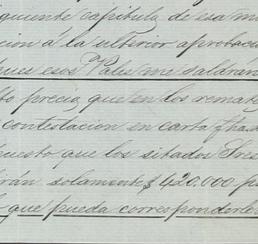 siguiente capitula de esa m
cion á la ulterior aprobaci
pues esos Vales me saldrán
to precio que en los remate
contestacion en carta fha
puesto que los sitados Sres
drán solamente $ 420.000 p
que pueda corresponderle